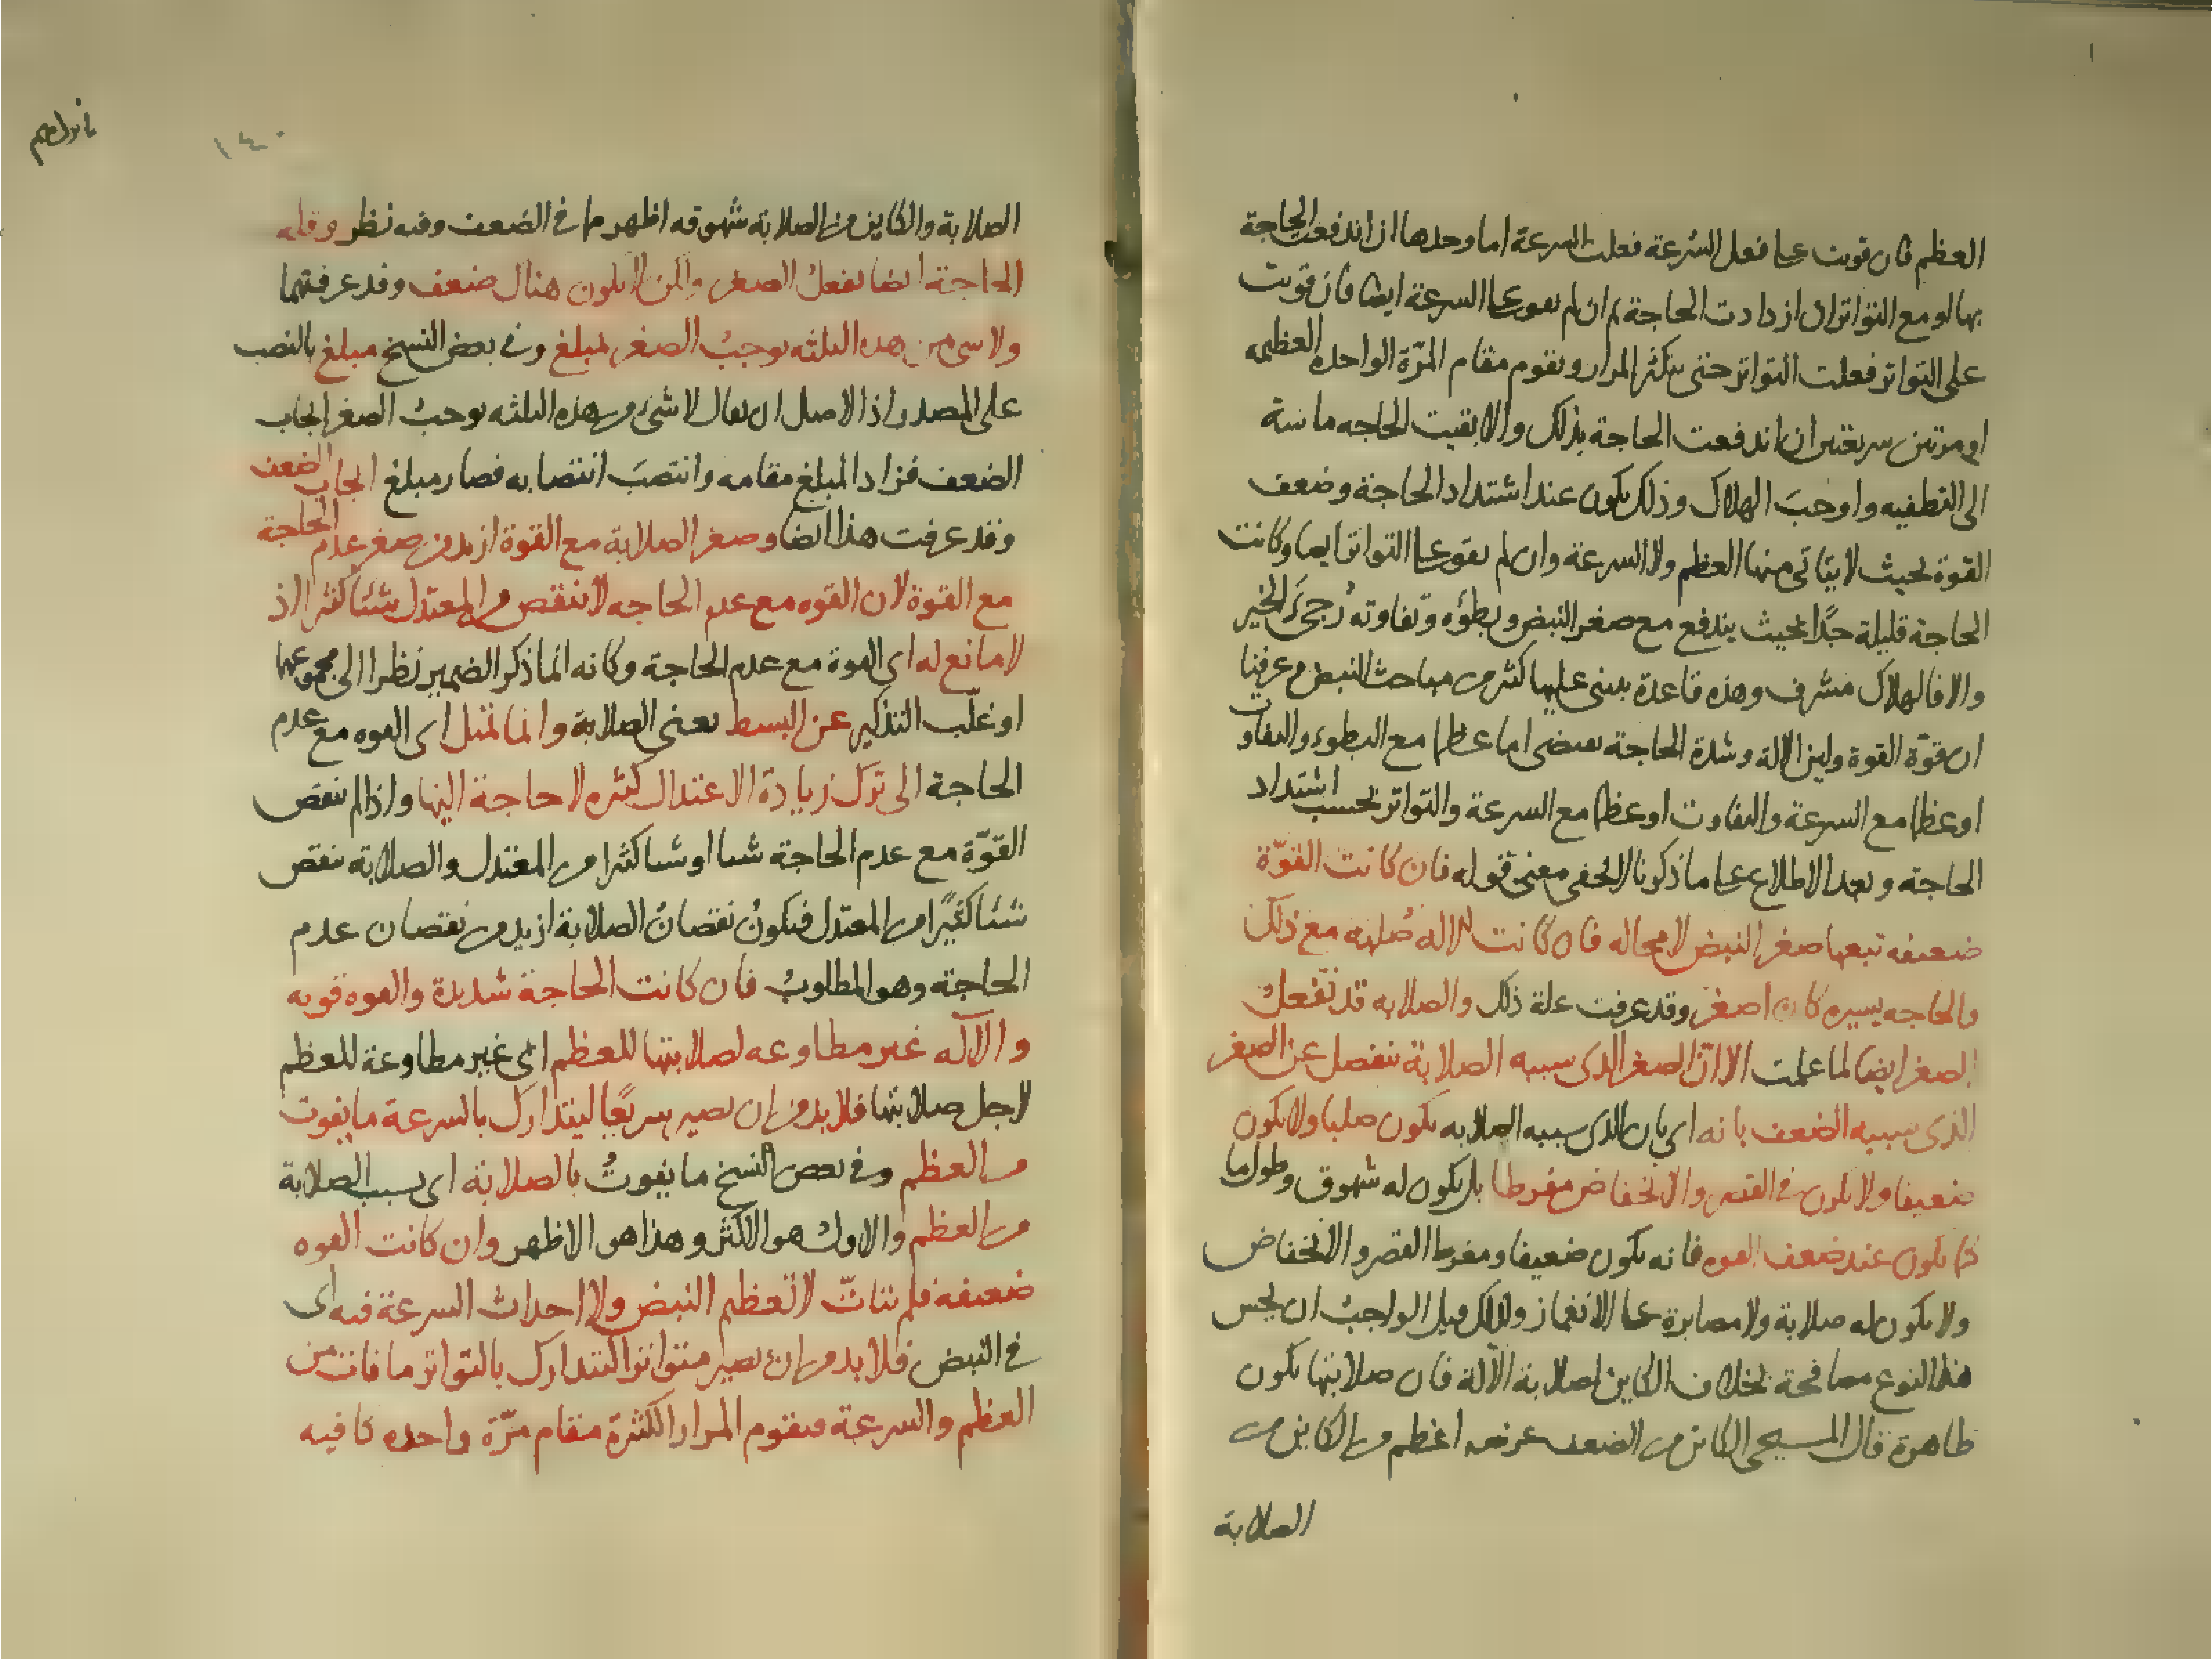 العظم فان قويت على فعل السرعة فعلت السرعة اما وحدها ان اندفعت الحاجة
بها او مع التواتر ان ازدادت الحاجة ثم ان لم تقو على السرعة ايضا فان قويت
على التواتر فعلت التواتر حتى يتكثر المرار ويقوم مقام المرّة الواحده العظيمه
او مرتين سريعتين ان اندفعت الحاجة بذلك والا بقيت الحاجه ماسة
الى التطفيه واوجبَ الهلاك وذلك يكون عند اشتداد الحاجة وضعف
القوة بحيث لا يتاتى منها العظم ولا السرعة وان لم تقو على التواتر ايضا وكانت
الحاجة قليلة جدًا بحيث يندفع مع صغر النبض وبطؤه وتفاوته رُجىَ الخير
والا فالهلاك مشرف وهذه قاعدة يبنى عليها كثير من مباحث النبض وعرفنا
ان قوّة القوة ولين الآلة وشدة الحاجة يقتضى اما عظما مع البطوء والتفاوت
او عظما مع السرعة والتفاوت او عظما مع السرعة والتواتر بحسب اشتداد
الحاجة وبعد الاطلاع على ما ذكرنا لا يخفى معنى قوله فان كانت القوّة
ضعيفه تبعها صغر النبض لا محاله فان كانت الاله صُلبه مع ذلك
والحاجه يسيره كان اصغر وقد عرفت علة ذلك والصلابه قد تفعلُ
الصغر ايضا لما علمت الا انّ الصغر الذى سببه الصلابة ينفصل عن الصغر
الذى سببه الضعف بانه اى بان الذى سببه الصلابه يكون صلبا ولا يكون
ضعيفا ولا يكون فى القصر والانخفاض مفرطا بل يكون له شهوق وطول ما
كما يكون عند ضعف القوه فانه يكون ضعيفا ومفرط القصر والانخفاض
ولا يكون له صلابة ولا مصابرة على الانغماز ولذلك قيل الواجبُ ان يجس
هذا النوع مصافحة بخلاف الكاين لصلابة الآلة فان صلابتها تكون
ظاهرة قال المسيحى الكاين من الضعف عرضه اعظم من الكاين من
الصلابة
١٤٠
الصلابة والكاين من الصلابة شهوقه اظهر مما فى الضعف وفيه نظر وقله
الحاجة ايضا تفعلُ الصغر ولكن لا يكون هناك ضعف وقد عرفتهما
ولا شى من هذه الثلثه يوجبُ الصغر بمبلغ وفى بعض النسخ مبلغ بالنصب
على المصدر اذ الاصل ان يقال لا شئ من هذه الثلثه يوجبُ الصغر ايجاب
الضعف فزاد المبلغ مقامه وانتصبَ انتصابه فصار مبلغ ايجاب الضعف
وقد عرفت هذا ايضا وصغر الصلابة مع القوة ازيد من صغر عدم الحاجة
مع القوة لان القوه مع عدم الحاجه لا تنقص من المعتدل شيئا كثيرا اذ
لا مانع له اى للقوة مع عدم الحاجة وكانه انما ذكر الضمير نظرا الى مجموعهما
او غلّب التذكير عن البسط يعنى الصلابة وانما تميل اى القوه مع عدم
الحاجة الى ترك زيادة الاعتدال كثيره لا حاجة اليها واذا لم تنقص
القوّة مع عدم الحاجة شيئا او شيئا كثيرا من المعتدل والصلابة تنقص
شيئا كثيًرا من المعتدل فيكونُ نقصانُ الصلابة ازيد من نقصان عدم
الحاجة وهو المطلوبُ فان كانت الحاجة شديدة والقوه قويه
والآله غير مطاوعه لصلابتها للعظم اى غير مطاوعة للعظم
لاجل صلابتها فلا بد من ان يصير سريعًا ليتدارك بالسرعة ما يفوت
من العظم وفى بعض النسخ ما يفوتُ بالصلابة اى بسبب الصلابة
من العظم والاول هو الاكثر وهذا هو الاظهر وان كانت القوه
ضعيفه فلم يتاتّ لا تعظيم النبض ولا احداث السرعة فيه اى
فى النبض فلا بد من ان يصير متواترا ليتدارك بالتواتر ما فات من
العظم والسرعة فيقوم المرار الكثيرة مقام مرّة واحده كافيه